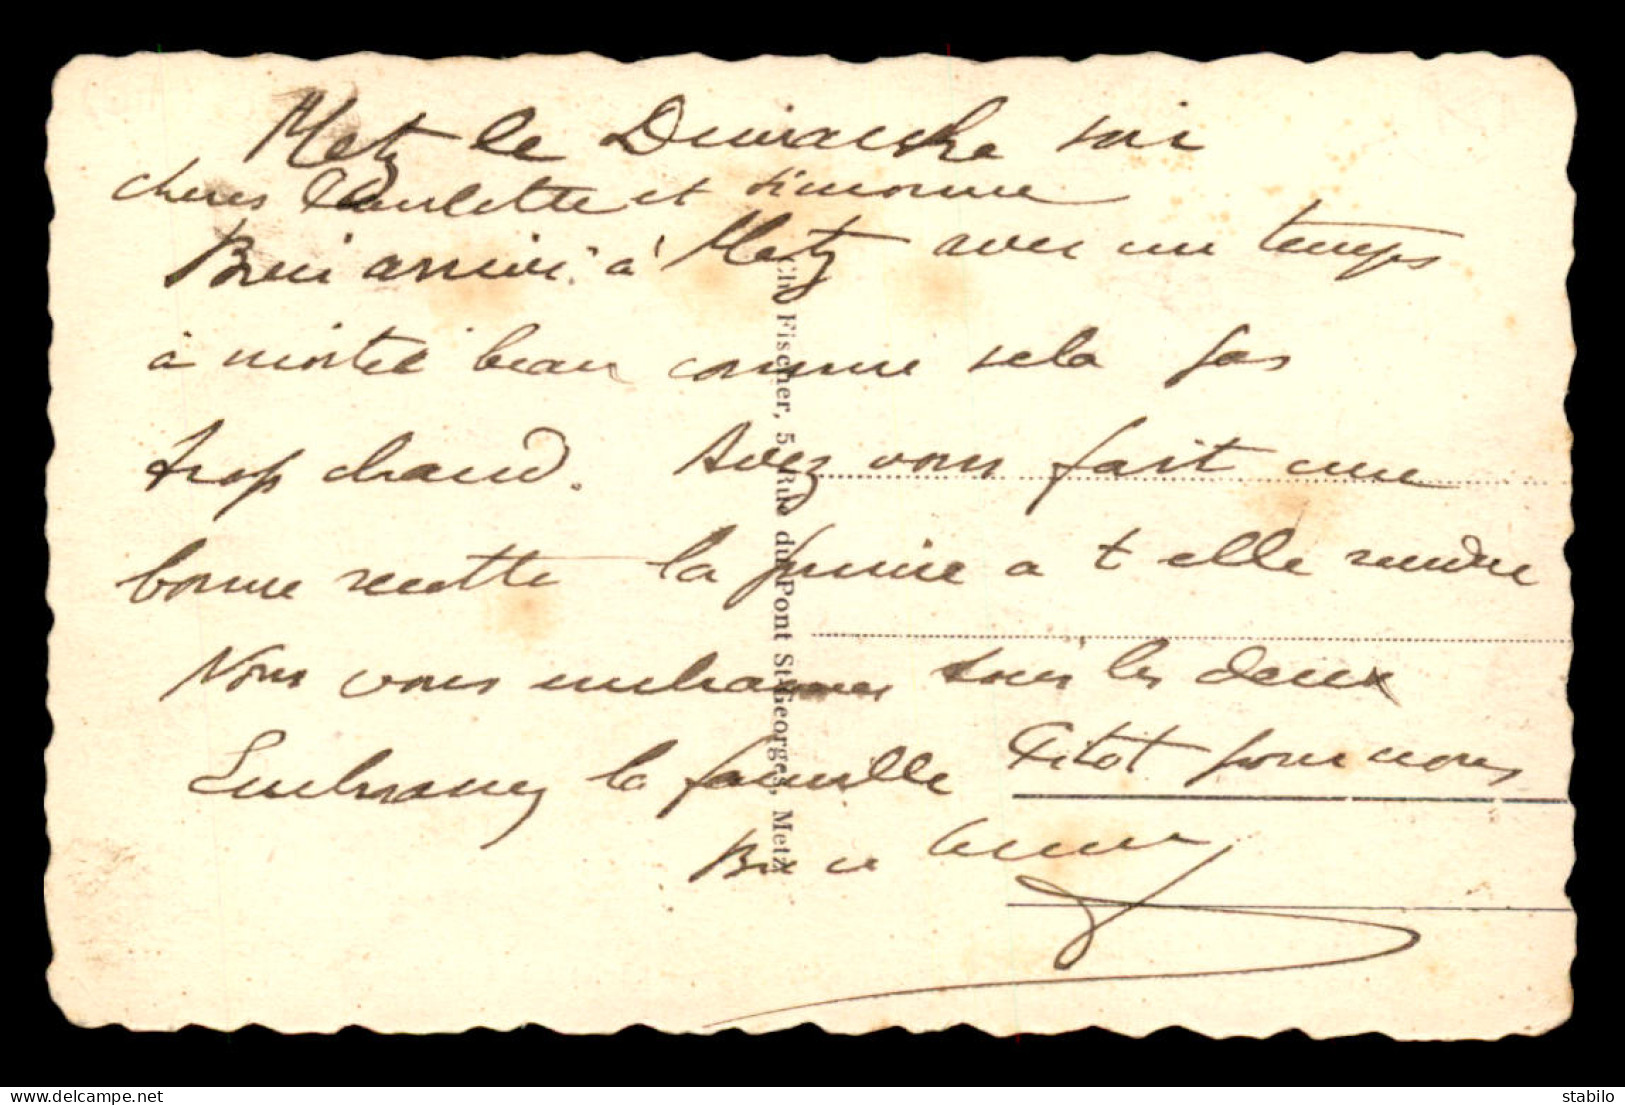 Metz le Dimanche soir
cheres Paulette et Simonne
Bien arrivé à Metz avec un temps
à moitié beau comme sela pas
trop chaud. Avez vous fait une
bonne recette la prime a t elle rendue
Nous vous embrassons tous les deux
Embrassez la famille Titot pour nous
Ch. Fischer, 5, Rue du Pont St-Georges, Metz
stabilo